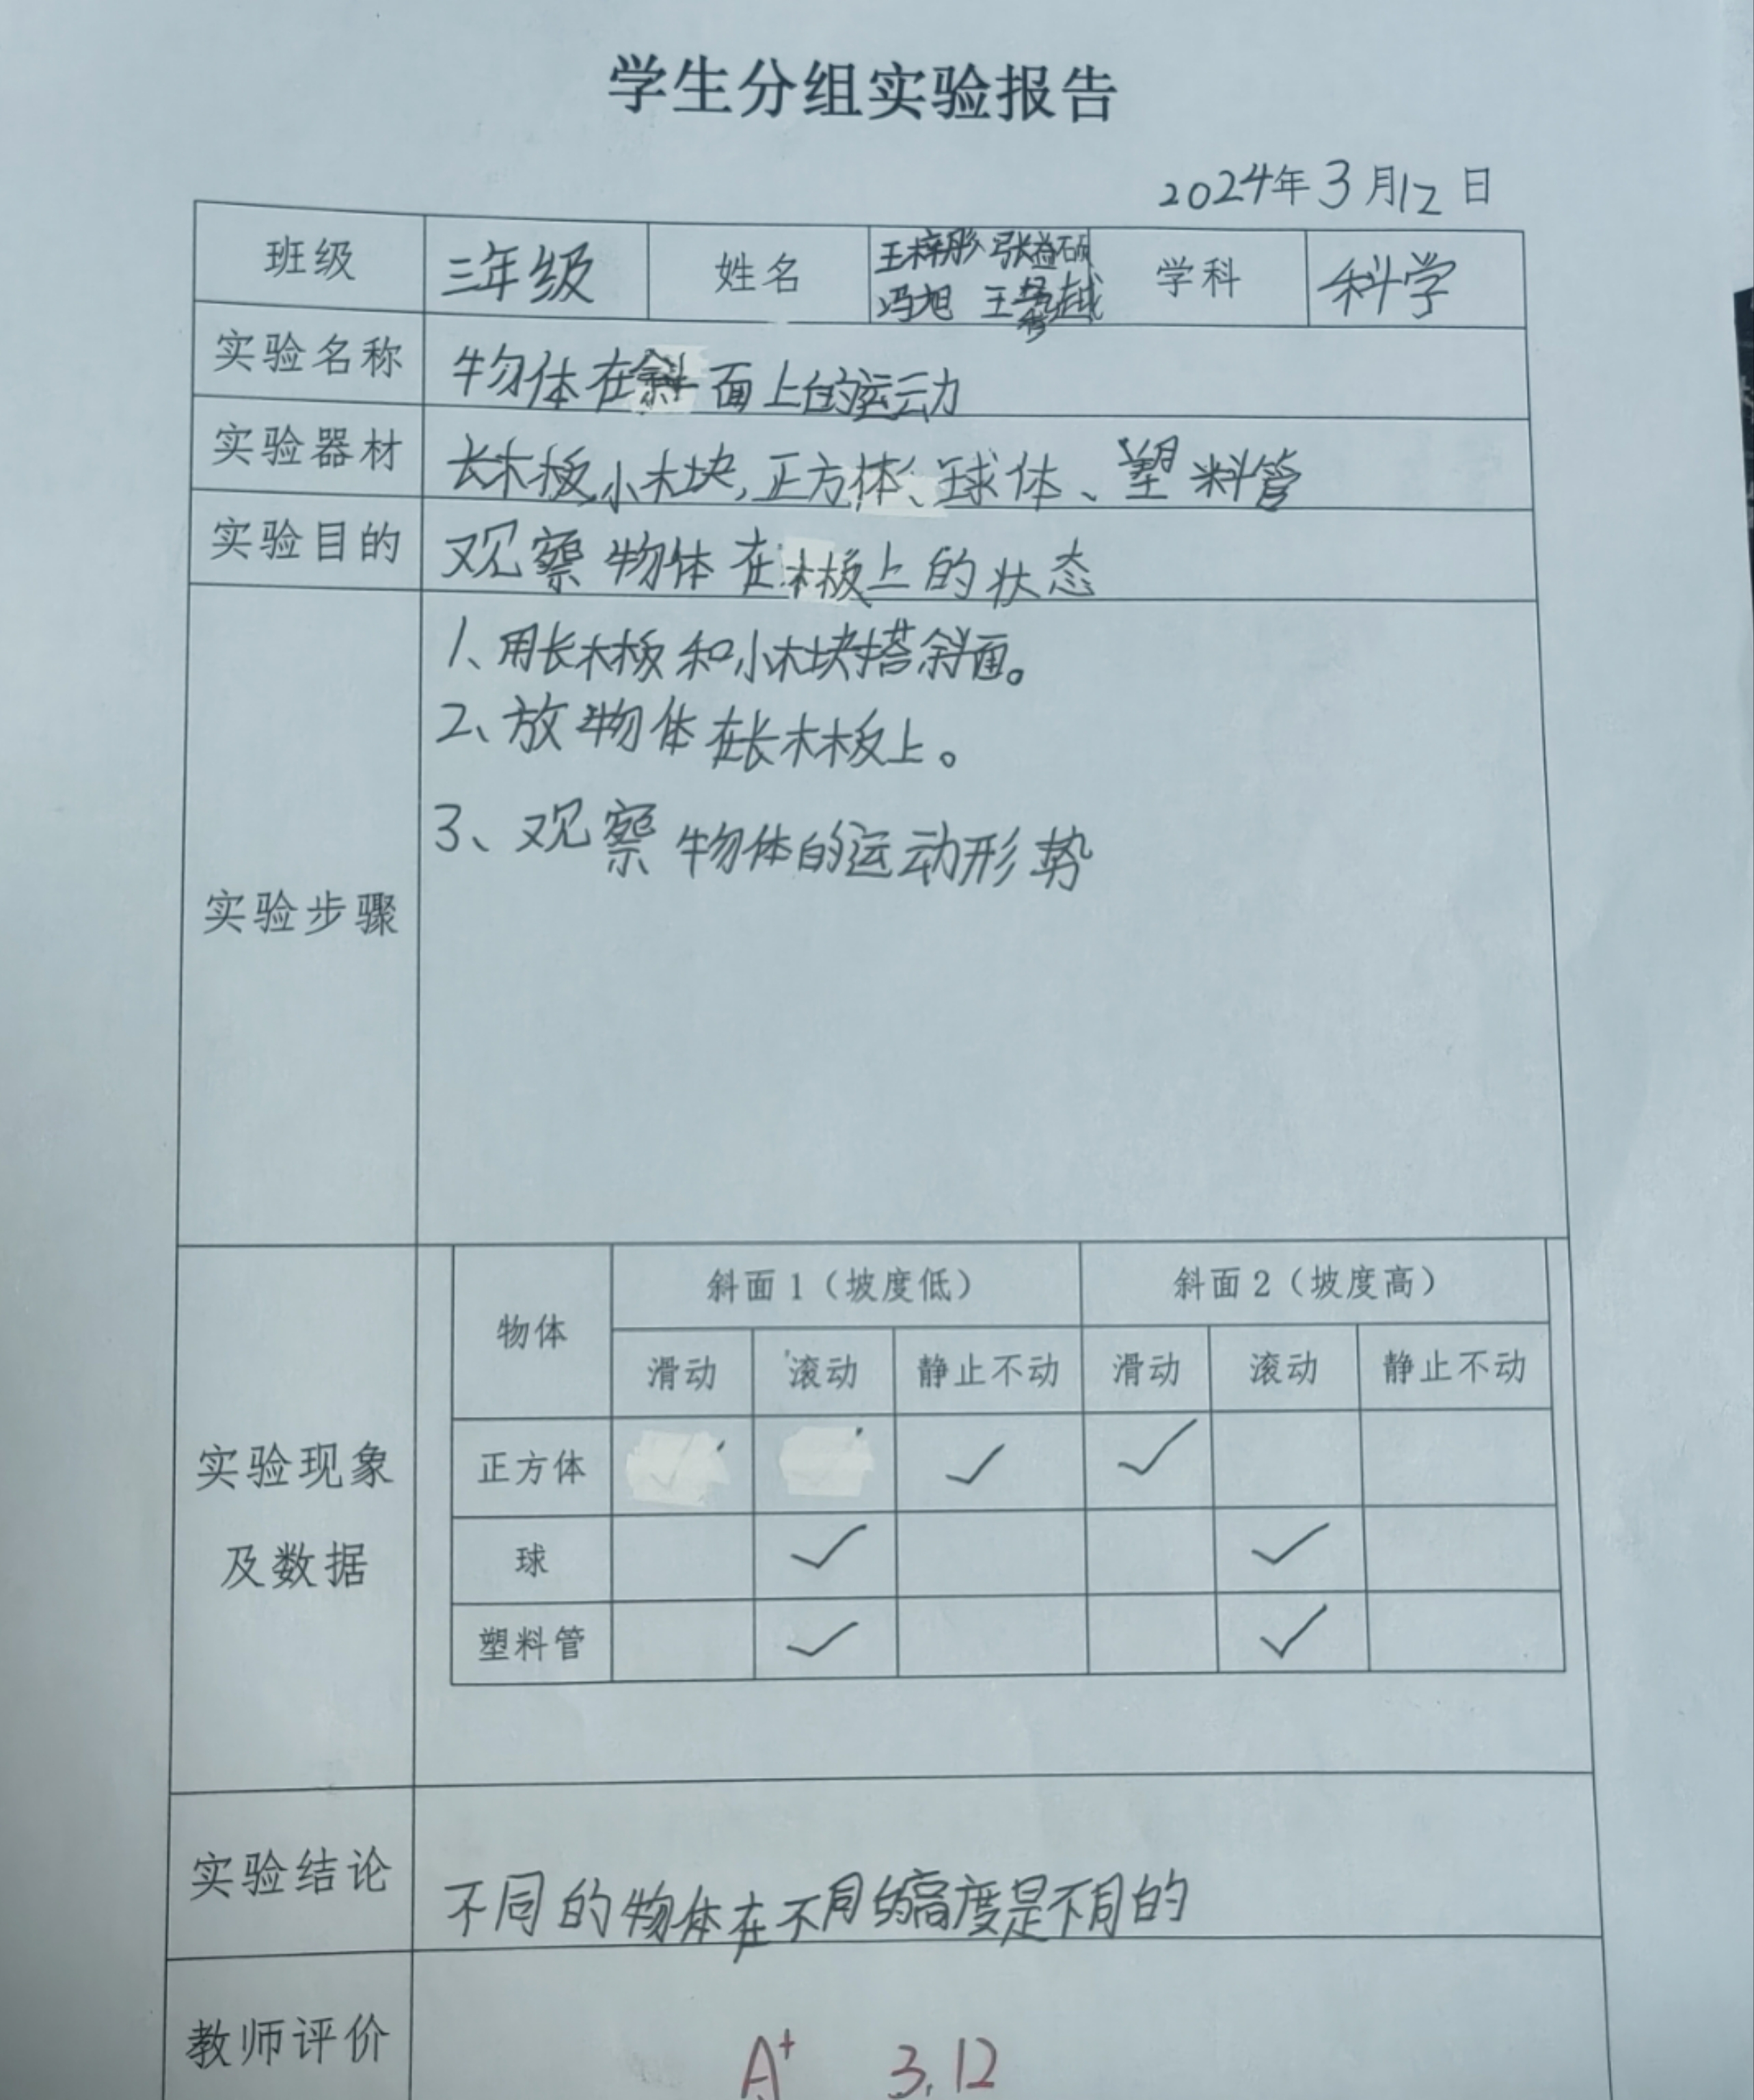 学生分组实验报告
2024年3月12日
班级 三年级 姓名 王梓彤 张益硕 学科 科学
冯旭 王 越
实验名称 物体在斜面上的运动
实验器材 长木板,小木块,正方体、球体、塑料管
实验目的 观察物体在木板上的状态
1、用长木板和小木块搭斜面。
2、放物体在长木板上。
3、观察物体的运动形势
实验步骤
物体 斜面1(坡度低) 斜面2(坡度高)
滑动 滚动 静止不动 滑动 滚动 静止不动
正方体 ✓ ✓
球 ✓ ✓
塑料管 ✓ ✓
实验现象
及数据
实验结论 不同的物体在不同的高度是不同的
教师评价 A+ 3.12